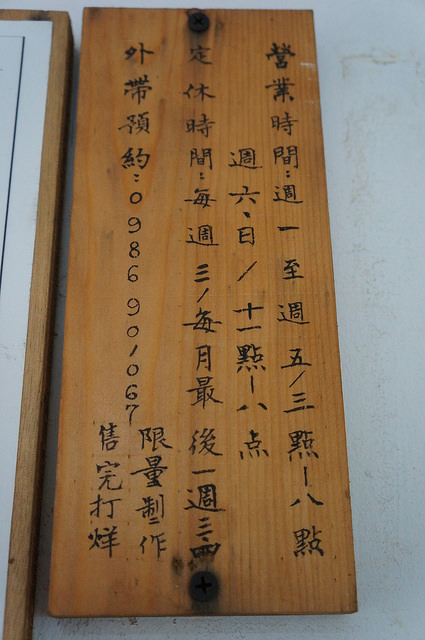 營業時間：週一至週五/三點-八點
週六、日/十一點-八点
定休時間：每週三/每月最後一週三、四
外帶預約：0986901067
限量製作
售完打烊